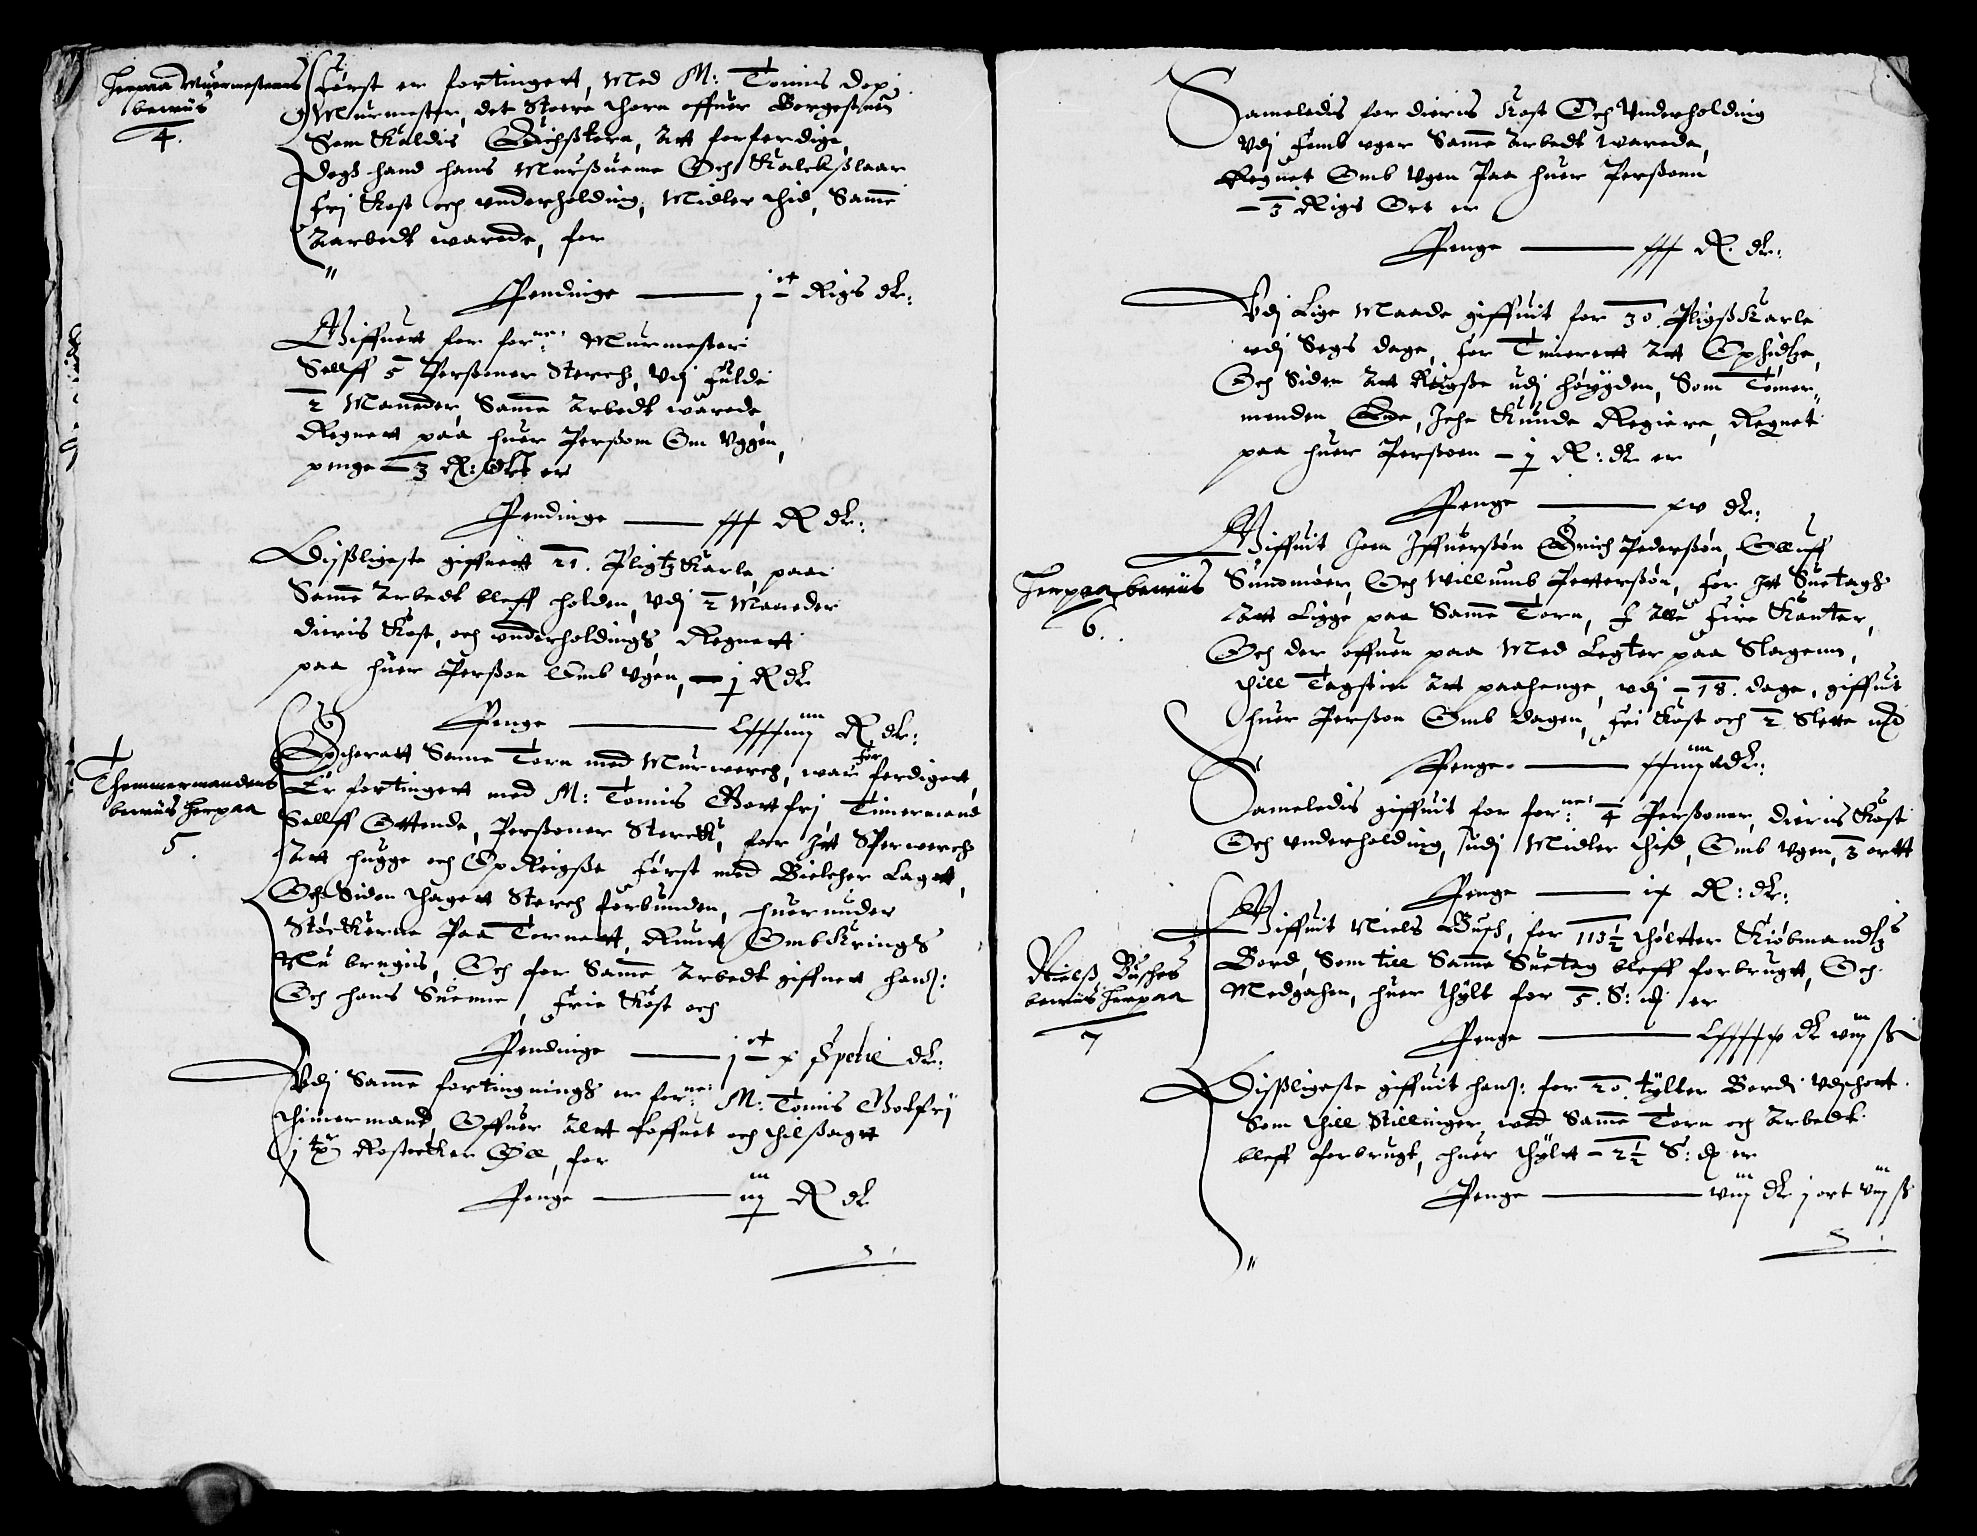 Herpaa Muermesterns
beuiis
4.
Først er fortinget, Med M: Tomis
Murmester, det Stoere thorn offuer Borgestuen
Som Kaldis, Att forferdige,
hand hans Mursuenne Och Kalckslaar
Frj Kost och underholding, Midler thid, Samme
Aarbedt warede, for
Pendinge —— j Rigs dl:
Giffuett for forne: Murmester
Sellff 5 Personer Sterch, Vdj Fulde
2 Maneder, Samme Arbedt warede
Regnett paa huer Person Om Vggen,
penge 3 R: Ort er
Pendinge —— xxx R dl:
Disligeste giffuett 21. Pligtzkarle, paa
Samme Arbedt bleff holden, Vdj 2 Maaneder
dieris Kost, och vnderholdings, Regnett
paa huer Person Omb Vgen, – j R dl
Penge —— R dl:
Themmermandens
beuiis herpaa
5.
Effteratt Samme Torn med Murwerch, war for ferdigett,
Er fortingett med M: Tomis Bottfrj Timermand
Sellff Ottende, Personer Sterck, for Itt Sperwerch
Att hugge och OpReigse Først med Bielcher Lagett,
Och Siden thagett Sterch forbunden, huer under
Støckerne Paa Tornett, Runt Omb Krings
Nu brugis, Och for Samme Arbedt giffuett hans:
Och hans Suenne, Frie Kost och
Pendinge —— j Spetie dl:
Vdj Samme fortingnings er forne: M: Tomis Botfrj
thimermand, Offuer alt loffuet och thilsagtt
j Rostocker Øll, for
Penge —— iiij R dl
Sameledis for dieris Kost Och Vnderholding
Vdj Femb vger Samme Arbedt warede,
Regnet Omb Vgen Paa huer Personn
– 3 Rigs Ort er
Penge —— xxx R. dl:
Vdj Lige Maade giffuit for 30. Pligskarle
vdj Segs dage, for Timerett Att Ophidse,
Och Siden Att Reigse udj høygden, Som Tømer-
menden Ene, Icke Kunde Regiere, Regnet
paa huer Persoen – j R: dl er
Penge —— xv dl:
Herpaa beuiis
6.
Giffuit Joen Iffuersøn Erich Pedersøn, Olluff
Sundmøer, Och Willumb Pettersøn, for Itt Suetags
Att Ligge paa Samme Torn, I Alle Fire Kanter,
Och der offuen paa Med Legter paa Slagenn,
thill Tagstin Att paahenge, vdj – 18. dage, giffuit
huer Person Omb dagen, Fri Kost och 2 Slette
Penge. —— dl:
Sameledis giffuit for forne: 4 Personer, dieris Kost
Och vnderholding, udj Midler thid, Omb Vgen, 3 ortt
Penge —— ix R: dl:
Nielss Busches
beuiis herpaa
7
Giffuit Niels Busch, for 113½ thøltter Kiøbmandts
Bord, Som till Samme Suetag bleff forbrugtt, Och
Medgahen, huer thylt for 5. S: er
Penge —— dl viij ß
Disligeste giffuit hans: for 20. tylter Bordj Vdschott
Som thill Stillinger, wed Samme Torn och Arbedt
bleff forbrugt, huer thyltt – 2½ S: er
Penge —— viij dl j ort viij ß